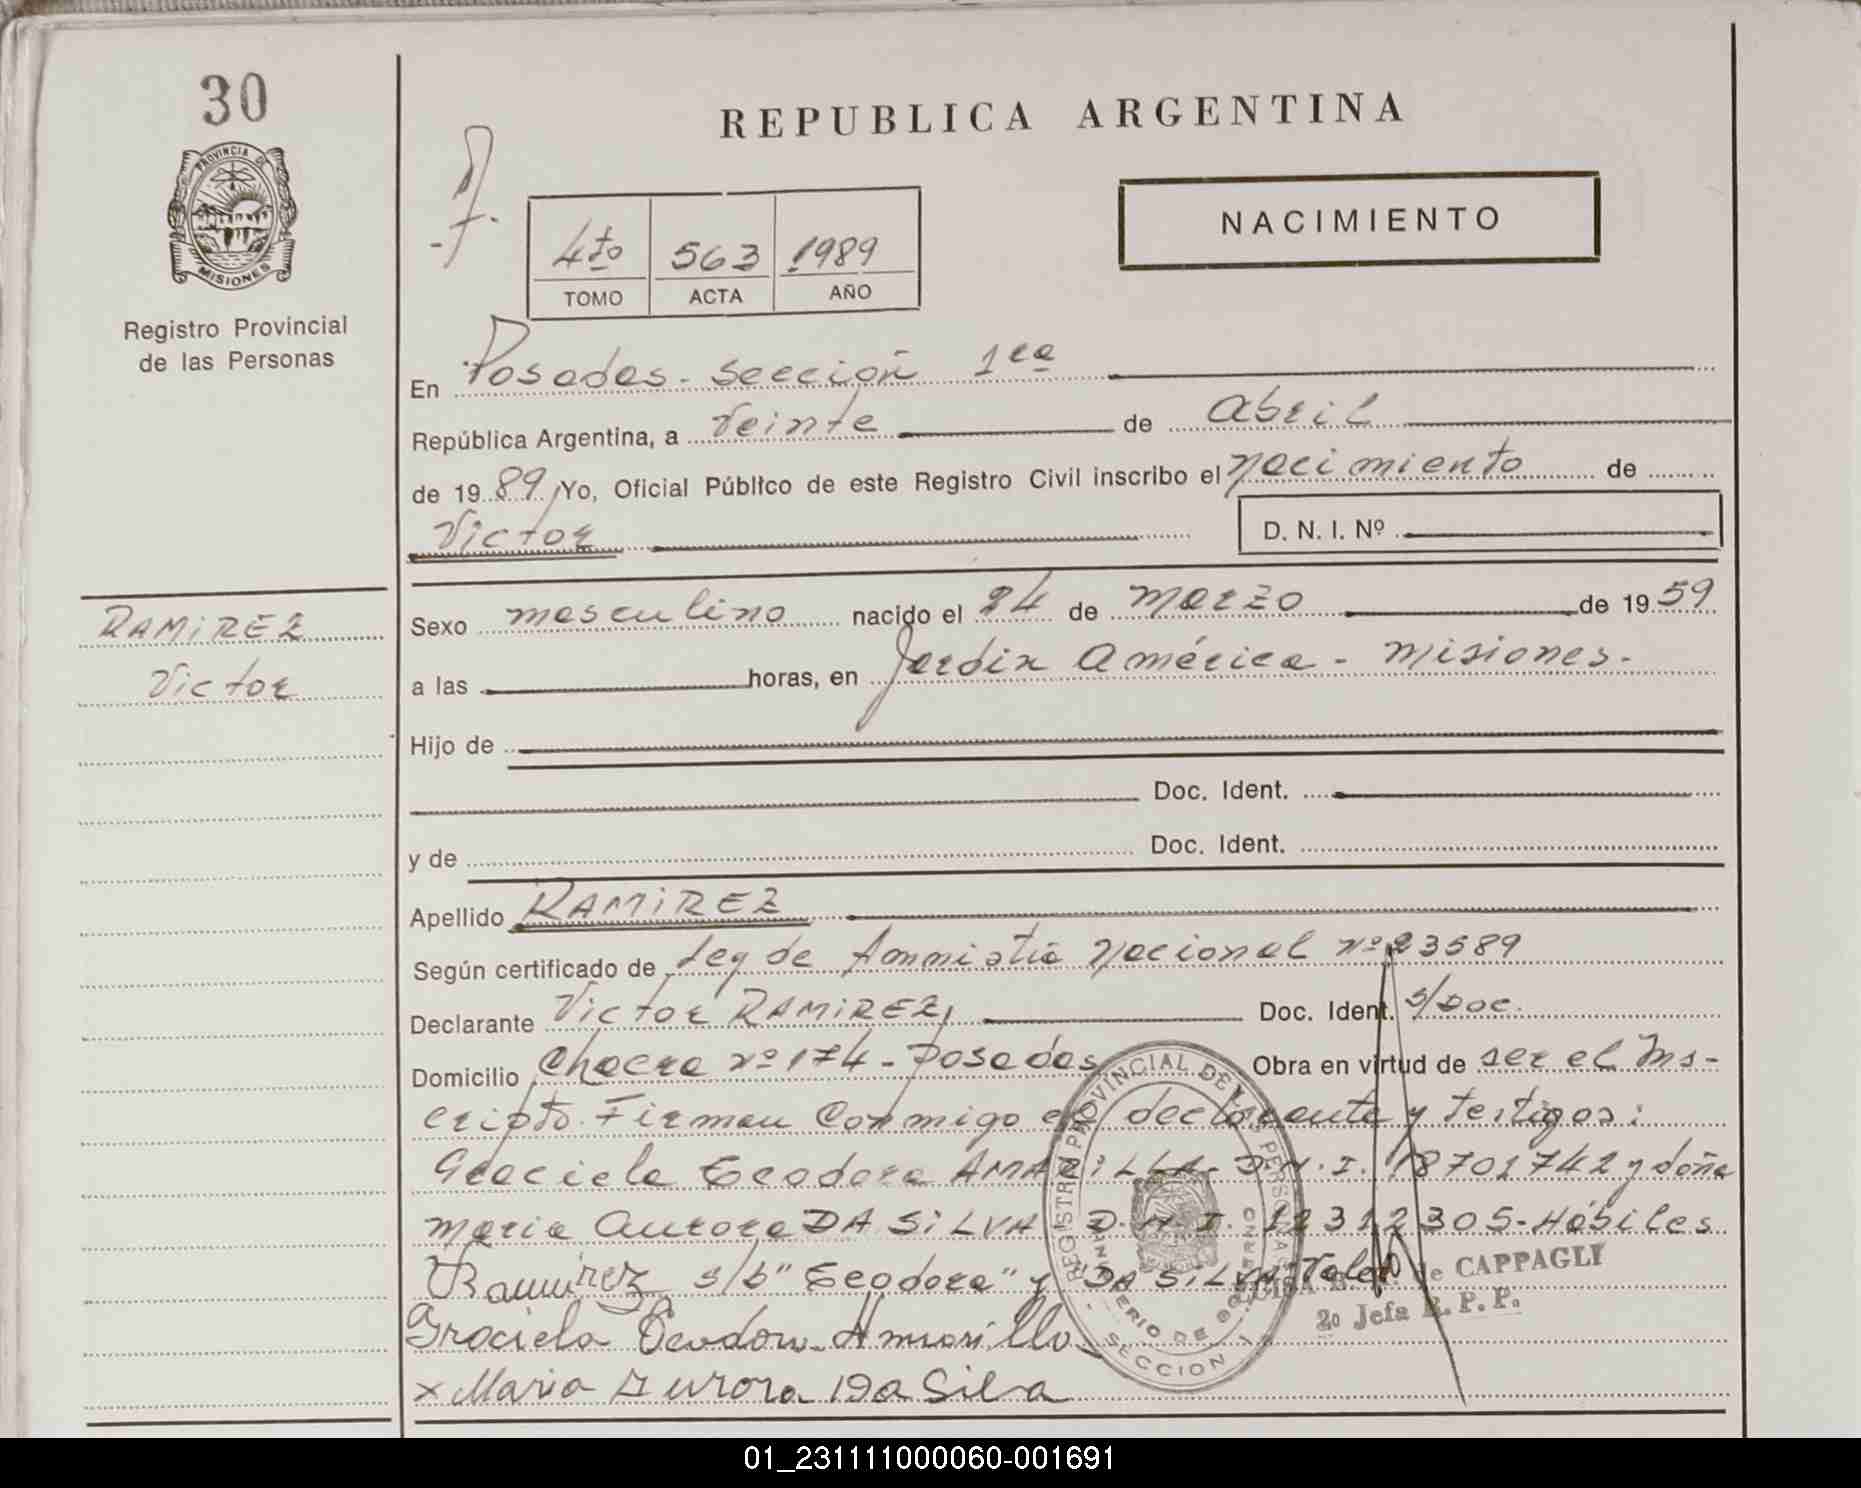 30
REPUBLICA ARGENTINA
PROVINCIA DE
MISIONES
Registro Provincial
de las Personas
4to 563 1989
TOMO ACTA AÑO
NACIMIENTO
En Posadas - Sección 1ra
República Argentina, a Veinte de Abril
de 1989 Yo, Oficial Público de este Registro Civil inscribo el nacimiento de
Victor D. N. I. Nº
RAMIREZ
Victor
Sexo masculino nacido el 24 de Marzo de 1959
a las horas, en Jardin América - Misiones.
Hijo de
Doc. Ident.
y de Doc. Ident.
Apellido RAMIREZ
Según certificado de Ley de Amnistia Nacional nº 23589
Declarante Victor RAMIREZ, Doc. Ident. s/Doc.
Domicilio Chacra nº 174 - Posadas Obra en virtud de ser el Ins-
cripto. Firman Conmigo el declarante y testigos:
Graciela Teodora AMARILLA D.N.I. 18701742 y doña
Maria Aurora DA SILVA D.N.I. 12312305 - Hábiles
VRamirez s/b "Teodora" y "DA SILVA" Vale
Graciela Teodora Amarilla
x Maria Aurora Da Silva
REGISTRO PROVINCIAL DE LAS PERSONAS
MINISTERIO DE GOBIERNO
SECCION 1
de CAPPAGLI
2º Jefa R. P. P.
01_231111000060-001691